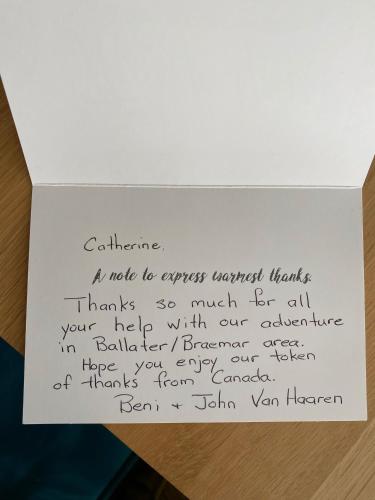 Catherine,
A note to express warmest thanks.
Thanks so much for all
your help with our adventure
in Ballater/Braemar area.
Hope you enjoy our token
of thanks from Canada.
Beni + John Van Haaren